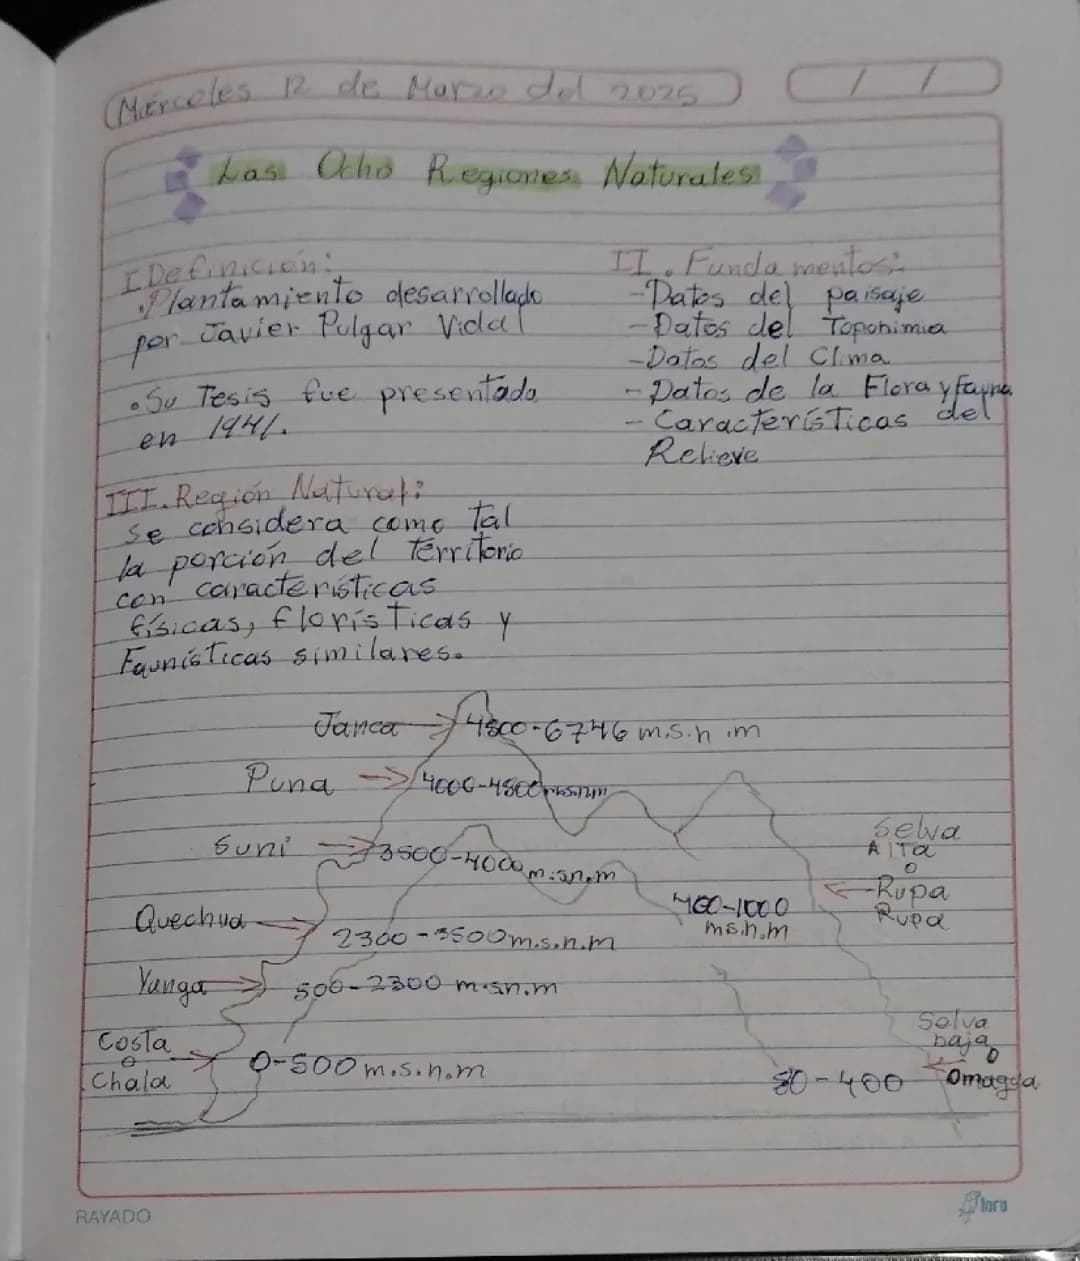 Miércoles 12 de Marzo del 2025
/ /
Las Ocho Regiones Naturales
I Definición:
. Plantamiento desarrollado
por Javier Pulgar Vidal
. Su Tesis fue presentada
en 1941.
II. Fundamentos:
- Datos del paisaje
- Datos del Toponimia
- Datos del Clima
- Datos de la Flora y fauna
- Características del
Relieve
III. Región Natural:
Se considera como tal
la porción del territorio
con características
físicas, florísticas y
Faunísticas similares.
Janca → 4800-6746 m.s.n.m
Puna → 4000-4800 msnm
Suni → 3500-4000 m.sn.m
Selva
Alta
o
Rupa
Rupa
400-1000
ms.n.m
Quechua → 2300-3500 m.s.n.m
Yunga → 500-2300 m.sn.m
Costa
o
Chala → 0-500 m.s.n.m
Selva
baja
o
Omagua
80-400
RAYADO
loro